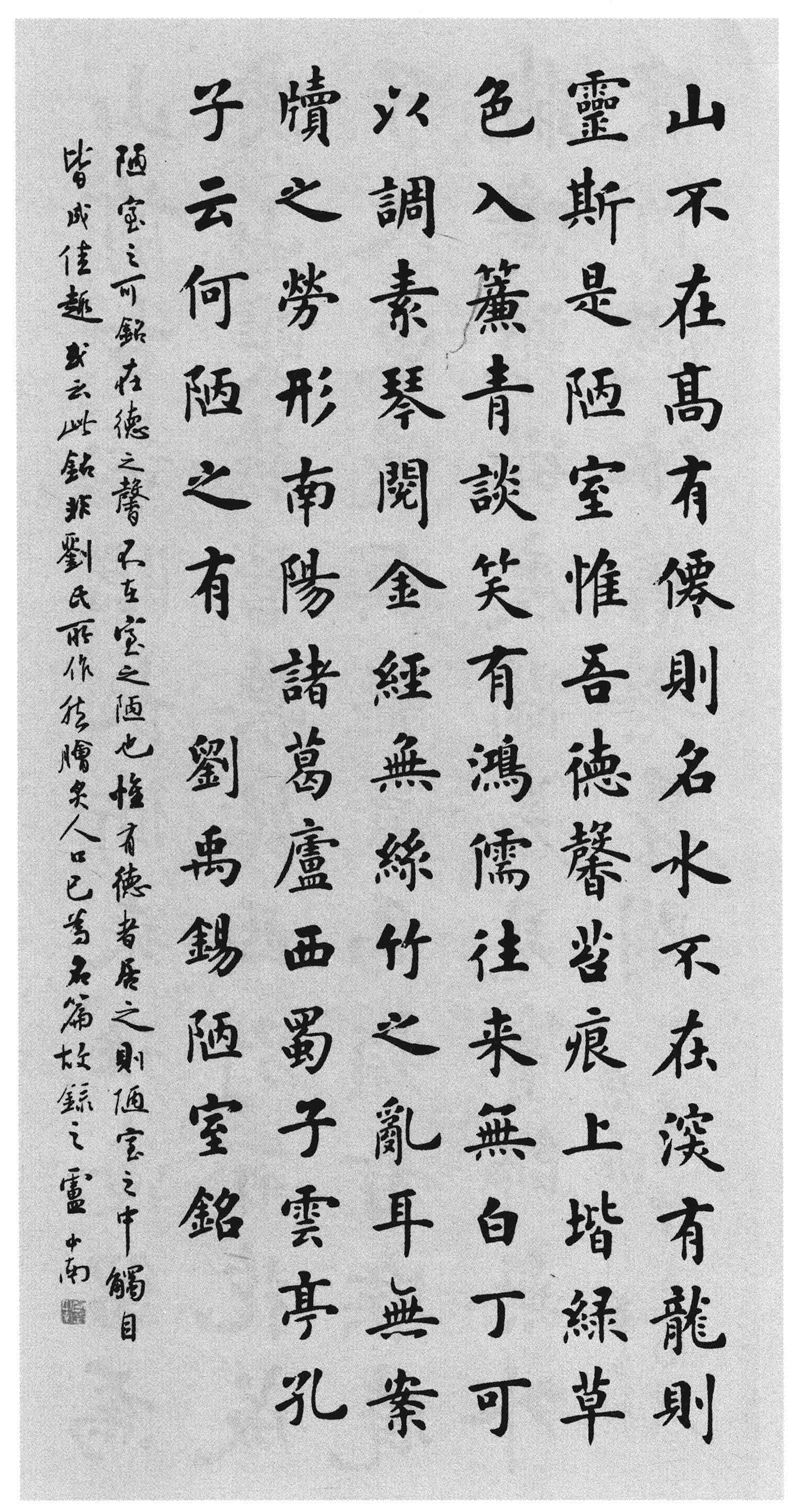 山不在高有僊則名水不在深有龍則
靈斯是陋室惟吾德馨苔痕上堦緑草
色入簾青談笑有鴻儒往来無白丁可
以調素琴閲金經無絲竹之亂耳無案
牘之勞形南陽諸葛廬西蜀子雲亭孔
子云何陋之有 劉禹錫陋室銘
陋室之可銘在德之馨不在室之陋也惟有德者居之則陋室之中觸目
皆成佳趣或云此銘非劉氏所作然膾炙人口已為名篇故録之盧中南